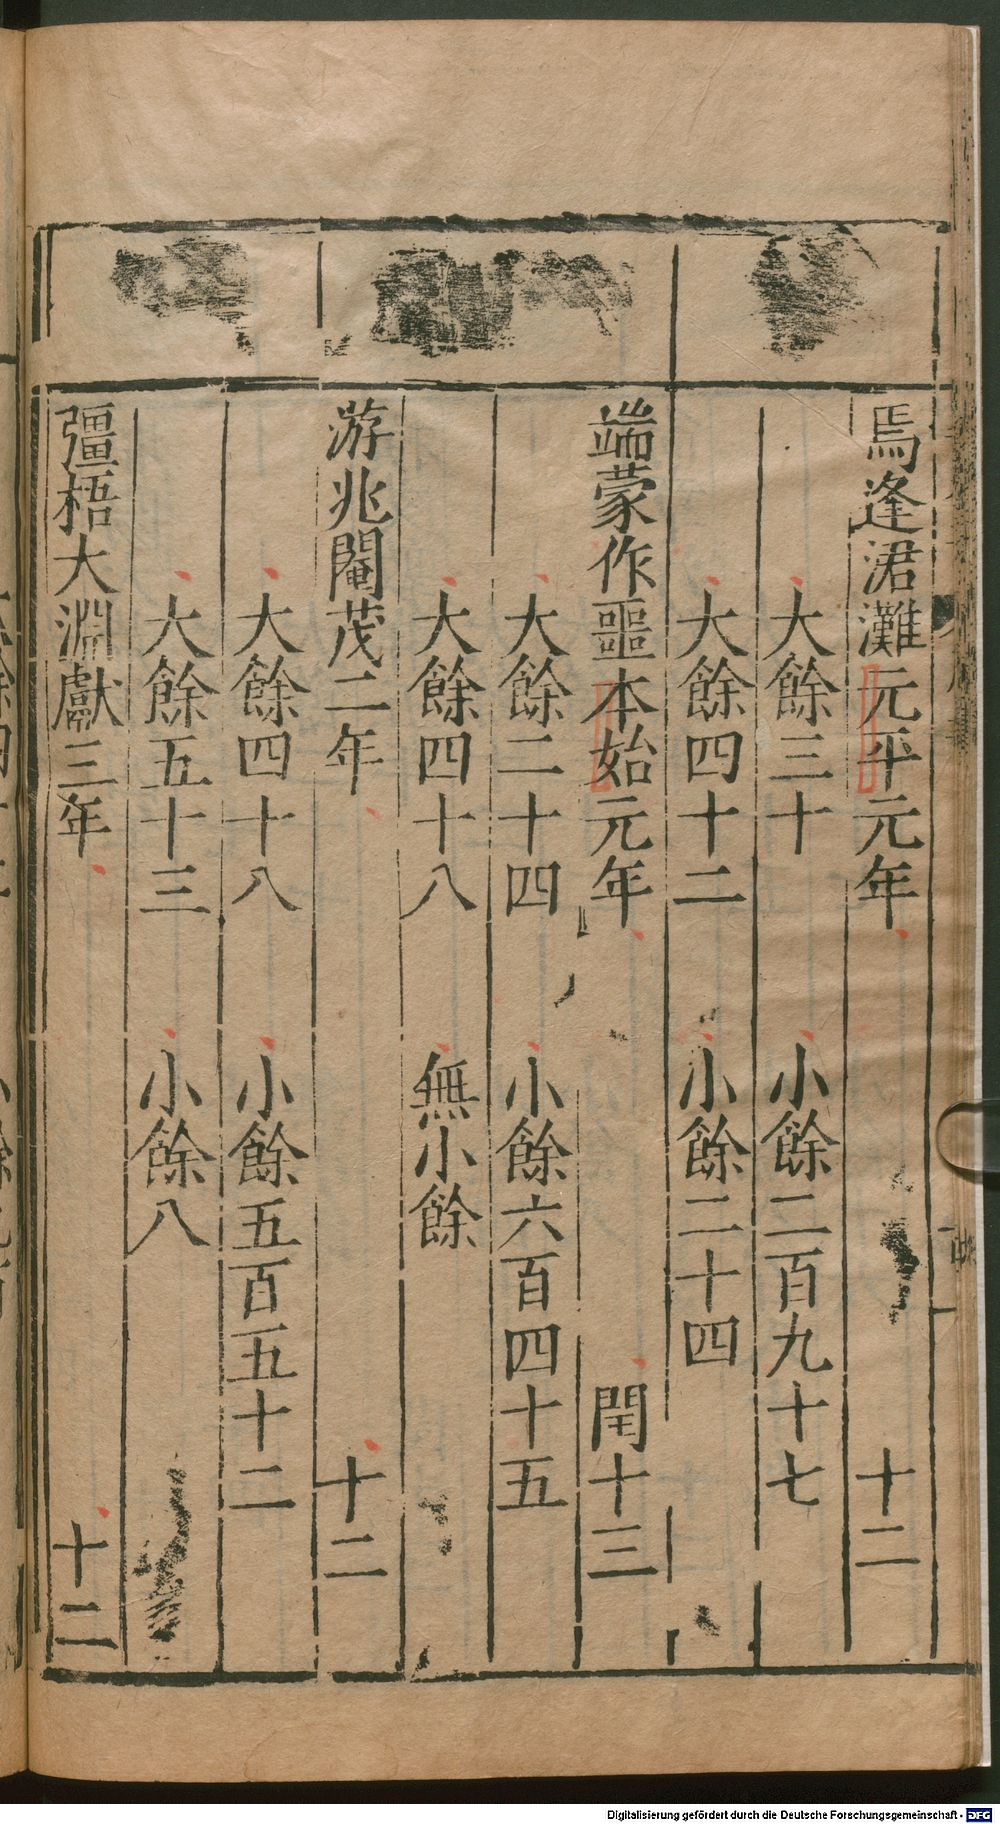 焉逢涒灘元平元年 十二
大餘三十 小餘二百九十七
大餘四十二 小餘二十四
端蒙作噩本始元年 閏十三
大餘二十四 小餘六百四十五
大餘四十八 無小餘
游兆閹茂二年 十二
大餘四十八 小餘五百五十二
大餘五十三 小餘八
彊梧大淵獻三年 十二
Digitalisierung gefördert durch die Deutsche Forschungsgemeinschaft - DFG